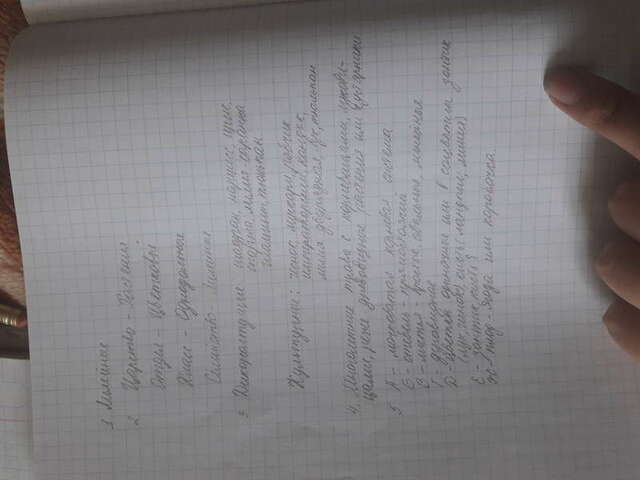 1 Лилейные
2. Царство - Растения
Отдел - Цветковые
Класс - Однодольные
Семейство - Лилейные
3 Дикорастущие: нарцисс, ирис,
спаржа, лилия-саранка
гиацинт, тюльпан
Культурные: чеснок, мускари, рябчик
императорский, кандык,
лилия двурядная, лук, тюльпан
4. Многолетние травы с корневищами, лукови-
цами, реже древовидные растения или кустарники
5 А - мочковатая корневая система
Б - стебель - прямостоячий
В - листья - простые, овальные, линейные
Г - дуговидное
Д - цветки одиночные или в соцветии зонтик
(лук, чеснок), кисть (ландыш, лилия)
Е - зонтик, кисть
Ж - плод - ягода или коробочка